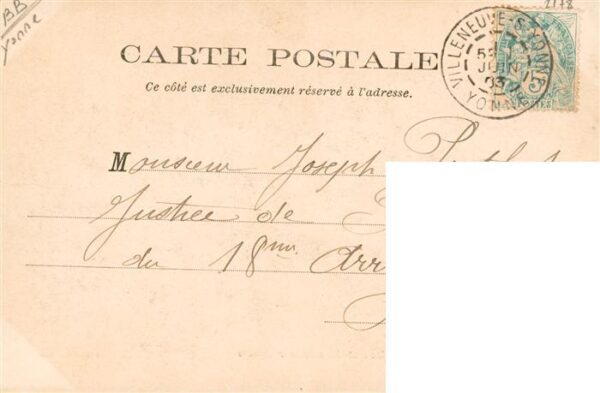 BB
Yonne
2178
CARTE POSTALE
VILLENEUVE-S-YONNE
JUIN
03
YONNE
Ce côté est exclusivement réservé à l'adresse.
Monsieur Joseph
Justice de
du 18me Arr